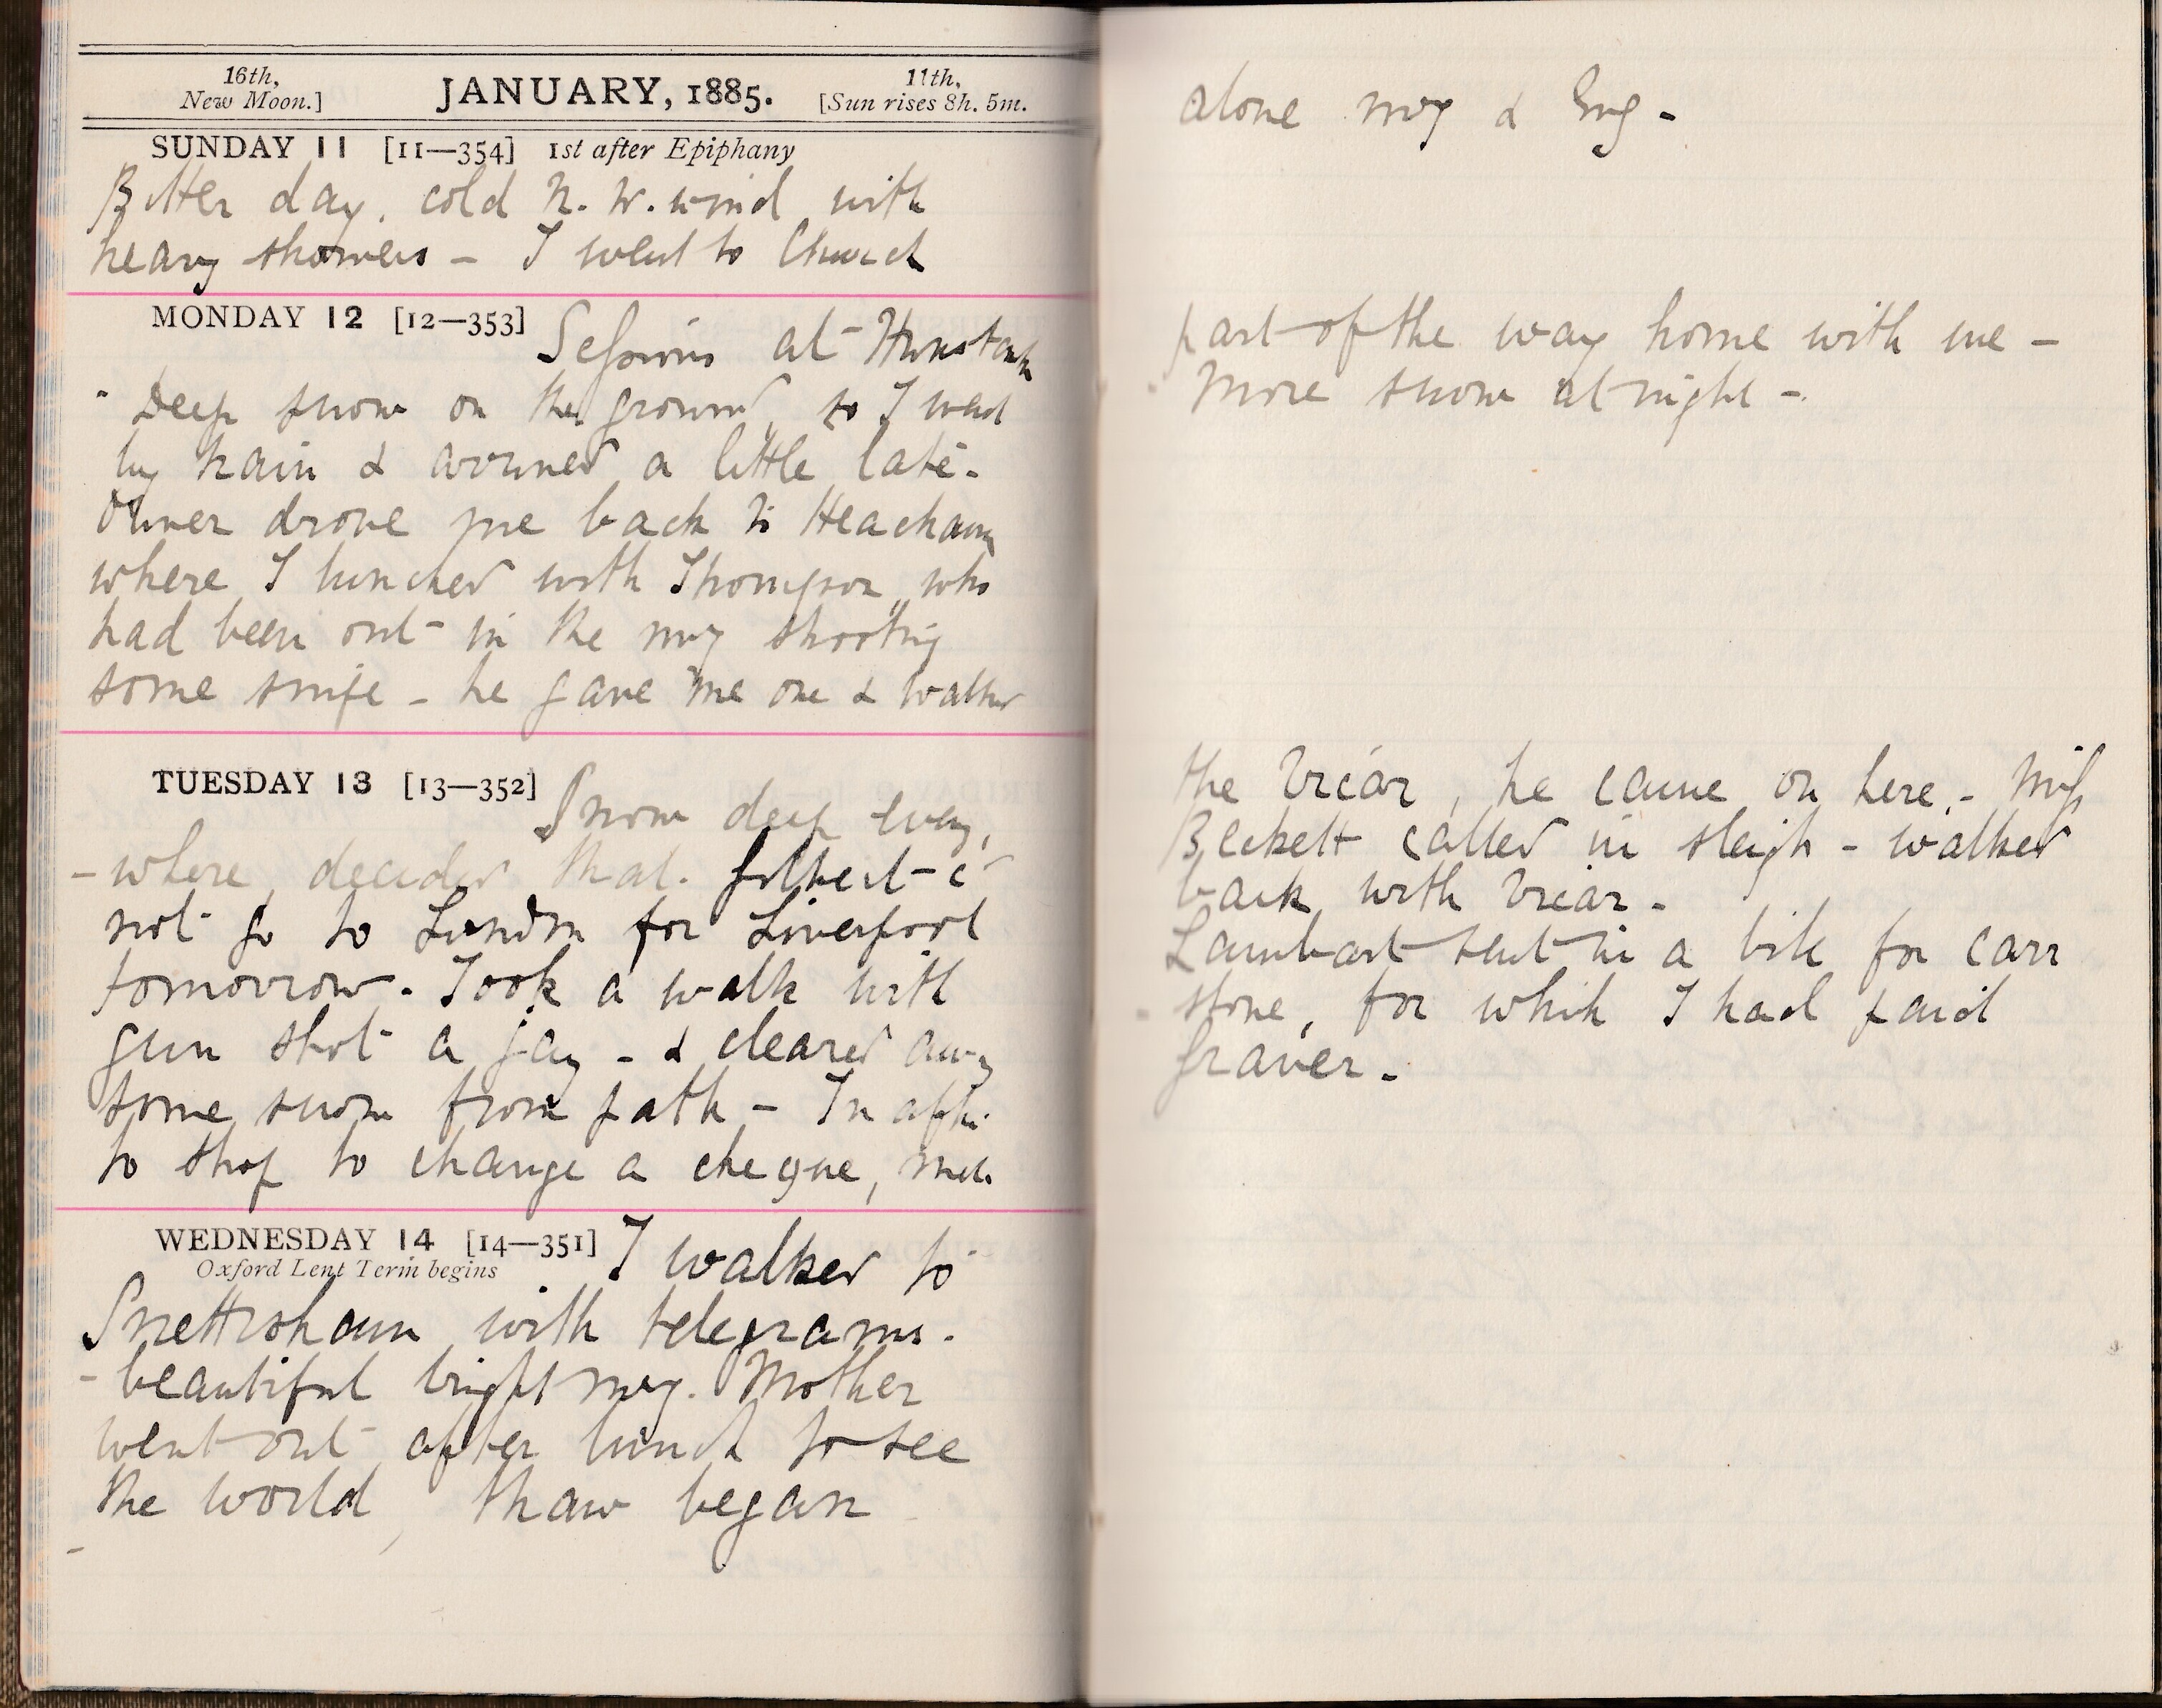 16th,
New Moon.]
JANUARY, 1885.
11th,
[Sun rises 8h. 5m.
SUNDAY 11 [11—354] 1st after Epiphany
Bitter day, cold N. W. wind with
heavy showers – I went to Church
MONDAY 12 [12—353]
Sessions at Hunstanton
Deep snow on the ground, so I went
by train & arrived a little late -
drove me back to Heacham
where I lunched with Thompson who
had been out in the mg shooting
some snipe - he gave me one & walked
TUESDAY 13 [13—352]
Snow deep every,
- where, decided that
not go to London for Liverpool
tomorrow - Took a walk with
gun shot a jay - & cleared away
some snow from path - In aftn
to shop to change a cheque, met
WEDNESDAY 14 [14—351]
Oxford Lent Term begins
I walked to
Snettisham with telegrams.
- beautiful bright mg. Mother
went out after lunch to see
the world, thaw began
alone mg & Evg -
part of the way home with me -
More snow at night -
the Vicar, he came on here - Miss
Beckett called in sleigh - walked
back with Vicar -
Lambart sent in a bill for carr
stone, for which I had paid
Graver -